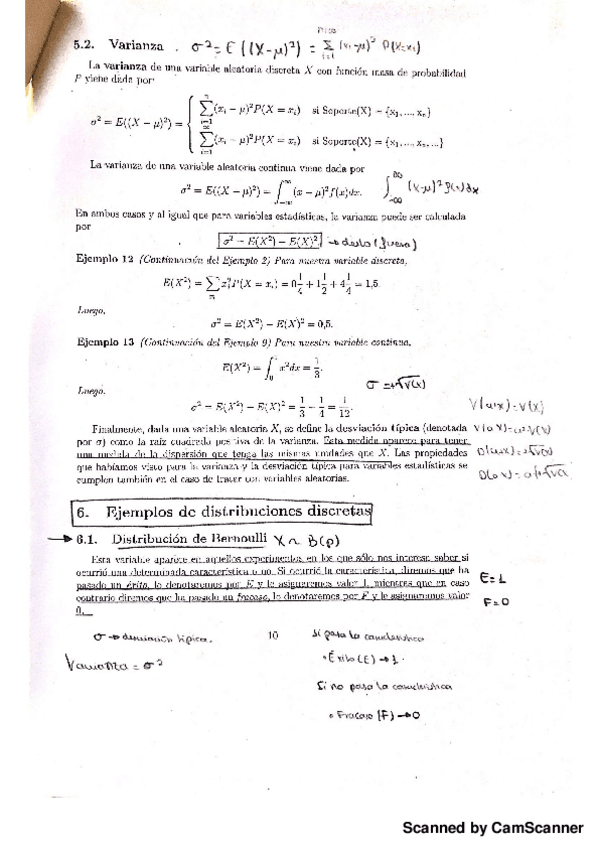 5.2. Varianza . σ² = E ((X-μ)²) = Σ (xᵢ-μ)² P(X=xᵢ)
i=1
La varianza de una variable aleatoria discreta X con función masa de probabilidad
P viene dada por:
σ² = E((X − μ)²) = { Σ(xᵢ − μ)²P(X = xᵢ) si Soporte(X) = {x₁, ..., xₙ}
Σ(xᵢ − μ)²P(X = xᵢ) si Soporte(X) = {x₁, ..., xₙ, ...}
La varianza de una variable aleatoria continua viene dada por
σ² = E((X − μ)²) = ∫_{−∞}^{∞} (x − μ)² f(x)dx. ∫_{-∞}^{∞} (x-μ)² f(x) dx
En ambos casos y al igual que para variables estadísticas, la varianza puede ser calculada
por
σ² = E(X²) − E(X)².
Ejemplo 12 (Continuación del Ejemplo 2) Para nuestra variable discreta,
E(X²) = Σ xᵢ²P(X = xᵢ) = 0 1/4 + 1 1/2 + 4 1/4 = 1,5.
Luego,
σ² = E(X²) − E(X)² = 0,5.
Ejemplo 13 (Continuación del Ejemplo 9) Para nuestra variable continua,
E(X²) = ∫₀¹ x²dx = 1/3.
σ = +√V(X)
Luego,
σ² = E(X²) − E(X)² = 1/3 − 1/4 = 1/12.
Finalmente, dada una variable aleatoria X, se define la desviación típica (denotada
por σ) como la raíz cuadrada positiva de la varianza. Esta medida aparece para tener
una medida de la dispersión que tenga las mismas unidades que X. Las propiedades
que habíamos visto para la varianza y la desviación típica para variables estadísticas se
cumplen también en el caso de tratar con variables aleatorias.
6. Ejemplos de distribuciones discretas
→ 6.1. Distribución de Bernoulli X ~ B(p)
Esta variable aparece en aquellos experimentos en los que sólo nos interesa saber si
ocurrió una determinada característica o no. Si ocurrió la característica, diremos que ha
pasado un éxito, lo denotaremos por E y le asignaremos valor 1, mientras que en caso
contrario diremos que ha pasado un fracaso, lo denotaremos por F y le asignaremos valor
0.
E=1
F=0
σ → desviación típica.
Varianza = σ²
10
Si pasa la característica
• Éxito (E) → 1
Si no pasa la característica
• Fracaso (F) → 0
Scanned by CamScanner